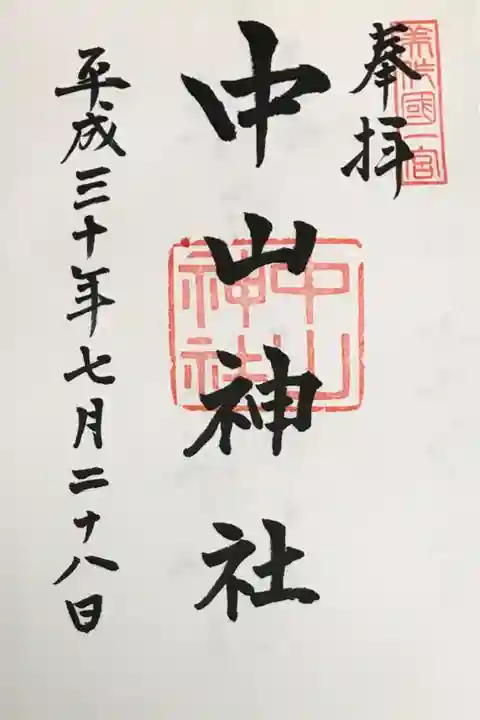 美作國一宮
奉拝
中山神社
中山神社
平成三十年七月二十八日